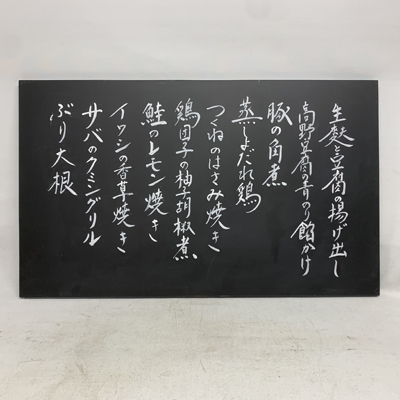 生麩と豆腐の揚げ出し
高野豆腐の青のり餡かけ
豚の角煮
蒸しよだれ鶏
つくねのはさみ焼き
鶏団子の柚子胡椒煮
鮭のレモン焼き
イワシの香草焼き
サバのクミングリル
ぶり大根